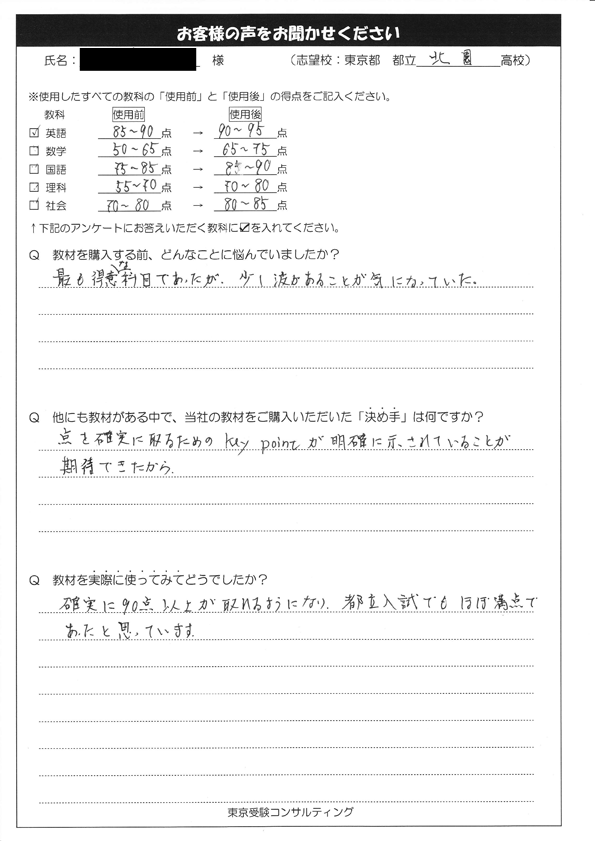 お客様の声をお聞かせください
氏名： 様 （志望校：東京都 都立 北園 高校）
※使用したすべての教科の「使用前」と「使用後」の得点をご記入ください。
教科 使用前 使用後
☑ 英語 85～90 点 → 90～95 点
□ 数学 50～65 点 → 65～75 点
□ 国語 75～85 点 → 85～90 点
□ 理科 55～70 点 → 70～80 点
□ 社会 70～80 点 → 80～85 点
↑下記のアンケートにお答えいただく教科に☑を入れてください。
Q 教材を購入する前、どんなことに悩んでいましたか？
最も得意な科目であったが、少し波があることが気になっていた。
Q 他にも教材がある中で、当社の教材をご購入いただいた「決め手」は何ですか？
点を確実に取るための key point が明確に示されていることが
期待できたから。
Q 教材を実際に使ってみてどうでしたか？
確実に90点以上が取れるようになり、都立入試でもほぼ満点で
あったと思っています。
東京受験コンサルティング